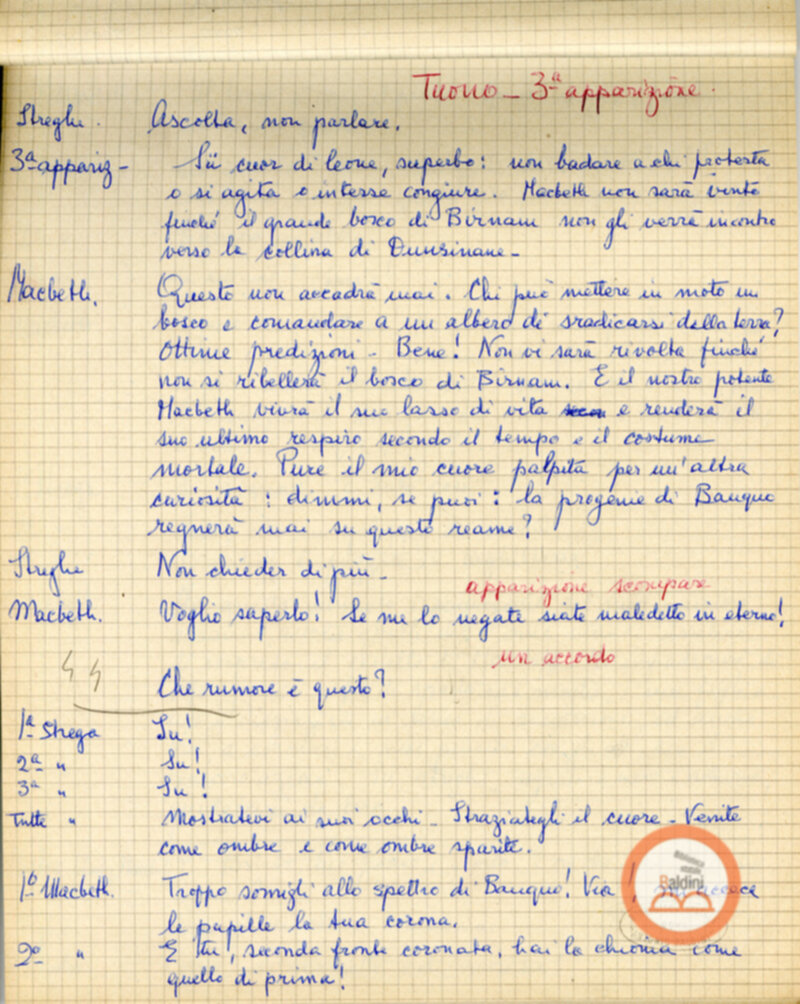 Tuono - 3ª apparizione.
Streghe. Ascolta, non parlare.
3ª appariz - Sii cuor di leone, superbo: non badare a chi protesta
o si agita o intesse congiure. Macbeth non sarà vinto
finché il grande bosco di Birnam non gli verrà incontro
verso la collina di Dunsinane -
Macbeth. Questo non accadrà mai. Chi può mettere in moto un
bosco e comandare a un albero di sradicarsi dalla terra?
Ottime predizioni - Bene! Non vi sarà rivolta finché
non si ribellerà il bosco di Birnam. E il nostro potente
Macbeth vivrà il suo lasso di vita e renderà il
suo ultimo respiro secondo il tempo e il costume
mortale. Pure il mio cuore palpita per un'altra
curiosità: dimmi, se puoi: la progenie di Banquo
regnerà mai su questo reame?
Streghe Non chieder di più -
apparizione scompare
Macbeth. Voglio saperlo! Se me lo negate siate maledette in eterno!
un accordo
Che rumore è questo?
1ª Strega Su!
2ª " Su!
3ª " Su!
Tutte " Mostratevi ai suoi occhi - Straziategli il cuore - Venite
come ombre e come ombre sparite.
1º Macbeth. Troppo somigli allo spettro di Banquo! Via!
le pupille la tua corona.
2º " E tu, seconda fronte coronata, hai la chioma come
quello di prima!
Biblioteca
Baldini